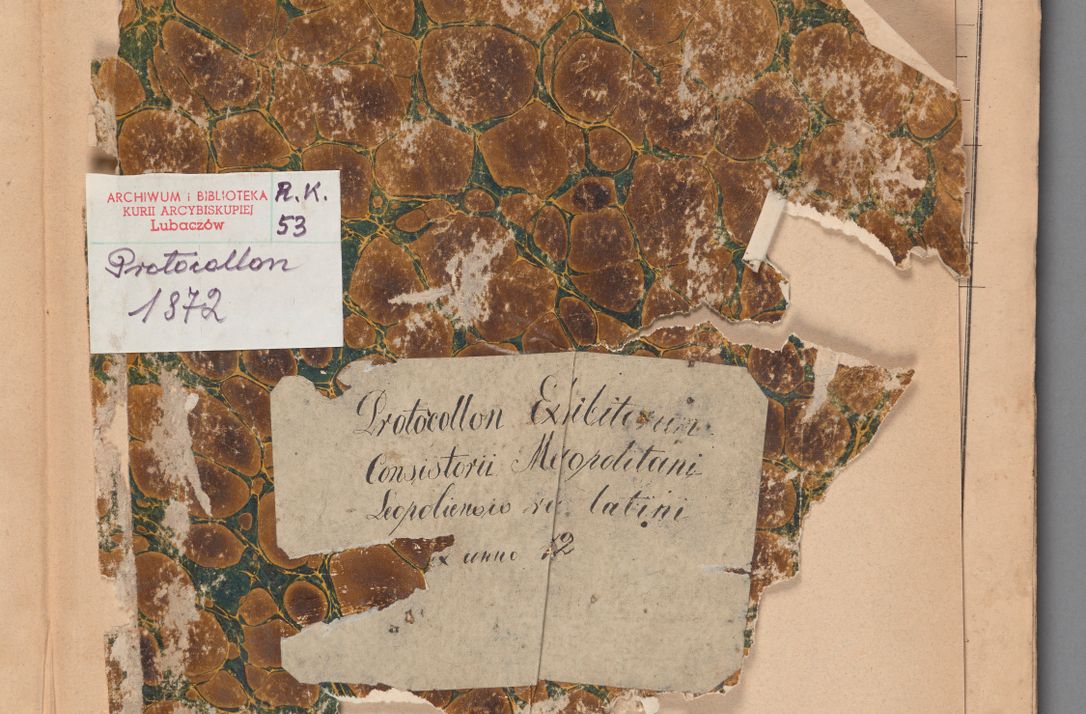 ARCHIWUM i BIBLIOTEKA
KURII ARCYBISKUPIEJ
Lubaczów
R.K.
53
Protocollon
1872
Protocollon Exhibitorum
Consistorii Metropolitani
Leopoliensis r. latini
ex anno 72